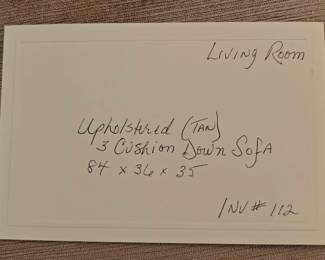 Living Room
Upholstered (Tan)
3 Cushion Down Sofa
84 x 36 x 35
Inv # 112